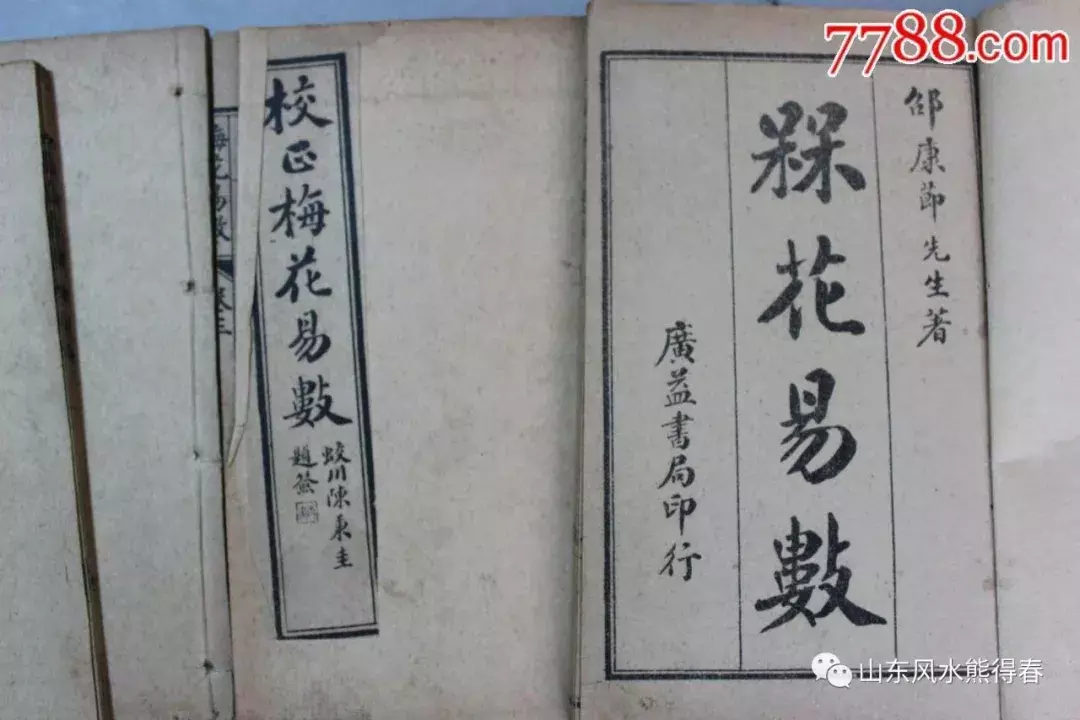 7788.com
邵康節先生著
槑花易數
廣益書局印行
校正梅花易數
蛟川陳秉圭
題簽
梅花易數
卷三
山东风水熊得春